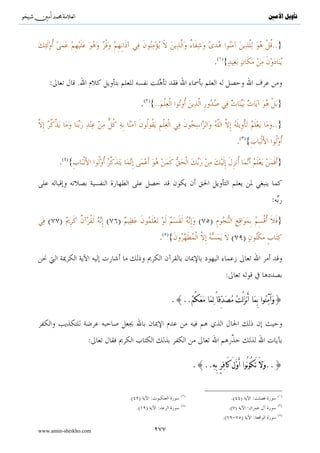 تأويل الأمين
العلامة محمد أمين شيخو
{..قُلْ هُوَ لِلَّذِينَ آمَنُوا هُدًى وَشِفَاءٌ وَالَّذِينَ لَا يُؤْمِنُونَ فِي آذَانِهِمْ وَقْرٌ وَهُوَ عَلَيْهِمْ عَمًى أُولَئِكَ
يُنَادَوْنَ مِنْ مَكَانٍ بَعِيدٍ}(١).
ومن عرف الله وحصل له العلم بأسماء الله فقد تأهَّلت نفسه للعلم بتأويل كلام الله. قال تعالى:
{بَلْ هُوَ آيَاتٌ بَيِّنَاتٌ فِي صُدُورِ الَّذِينَ أُوتُوا الْعِلْمَ..}(٢).
{..وَمَا يَعْلَمُ تَأْوِيلَهُ إِلَّا اللَّهُ وَالرَّاسِخُونَ فِي الْعِلْمِ يَقُولُونَ آمَنَّا بِهِ كُلٌّ مِنْ عِنْدِ رَبِّنَا وَمَا يَذَّكَّرُ إِلَّا
أُولُوا الْأَلْبَابِ}(٣).
{أَفَمَنْ يَعْلَمُ أَنَّمَا أُنْزِلَ إِلَيْكَ مِنْ رَبِّكَ الْحَقُّ كَمَنْ هُوَ أَعْمَى إِنَّمَا يَتَذَكَّرُ أُولُوا الْأَلْبَابِ}(٤).
كما ينبغي لمن يعلم التأويل الحق أن يكون قد حصل على الطهارة النفسية بصلاته وإقباله على
ربِّه:
{فَلَا أُقْسِمُ بِمَوَاقِعِ النُّجُومِ (٧٥) وَإِنَّهُ لَقَسَمٌ لَوْ تَعْلَمُونَ عَظِيمٌ (٧٦) إِنَّهُ لَقُرْآنٌ كَرِيمٌ (٧٧) فِي
كِتَابٍ مَكْنُونٍ (٧٩) لَا يَمَسُّهُ إِلَّا الْمُطَهَّرُونَ}(٥).
وقد أمر الله تعالى زعماء اليهود بالإيمان بالقرآن الكريم وذلك ما أشارت إليه الآية الكريمة التي نحن
بصددها في قوله تعالى:
﴿وَآمِنُوا بِمَا أَنْزَلْتُ مُصَدِّقًا لِمَا مَعَكُمْ..﴾.
وحيث إن ذلك الحال الذي هم فيه من عدم الإيمان بالله يجعل صاحبه عرضة للتكذيب والكفر
بآيات الله لذلك حذَّرهم الله تعالى من الكفر بذلك الكتاب الكريم فقال تعالى:
﴿..وَلَا تَكُونُوا أَوَّلَ كَافِرٍ بِهِ..﴾.
(١) سورة فصلت: الآية (٤٤).
(٢) سورة العنكبوت: الآية (٤٩).
(٣) سورة آل عمران: الآية (٧).
(٤) سورة الرعد: الآية (١٩).
(٥) سورة الواقعة: الآية (٧٥-٧٩).
٢٧٧
www.amin-sheikho.com